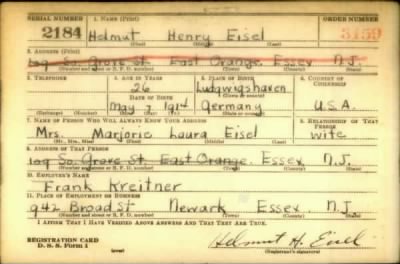 SERIAL NUMBER 1. NAME (Print) ORDER NUMBER
2184 Helmut Henry Eisel 3159
(First) (Middle) (Last)
2. ADDRESS (Print)
109 So. Grove St. East Orange. Essex N.J.
(Number and street or R. F. D. number) (Town) (County) (State)
3. TELEPHONE 4. AGE IN YEARS 5. PLACE OF BIRTH 6. COUNTRY OF CITIZENSHIP
26 Ludwigshaven
DATE OF BIRTH
May 7 1914 Germany U.S.A.
(Mo.) (Day) (Yr.) (State or country)
7. NAME OF PERSON WHO WILL ALWAYS KNOW YOUR ADDRESS 8. RELATIONSHIP OF THAT PERSON
Mrs. Marjorie Laura Eisel wife
(Mr., Mrs., Miss) (First) (Middle) (Last)
9. ADDRESS OF THAT PERSON
109 So. Grove St. East Orange. Essex N.J.
(Number and street or R. F. D. number) (Town) (County) (State)
10. EMPLOYER'S NAME
Frank Kreitner
11. PLACE OF EMPLOYMENT OR BUSINESS
942 Broad St Newark Essex N.J.
(Number and street or R. F. D. number) (Town) (County) (State)
I AFFIRM THAT I HAVE VERIFIED ABOVE ANSWERS AND THAT THEY ARE TRUE.
REGISTRATION CARD
D. S. S. Form 1 (over) Helmut H. Eisel
(Registrant's signature)